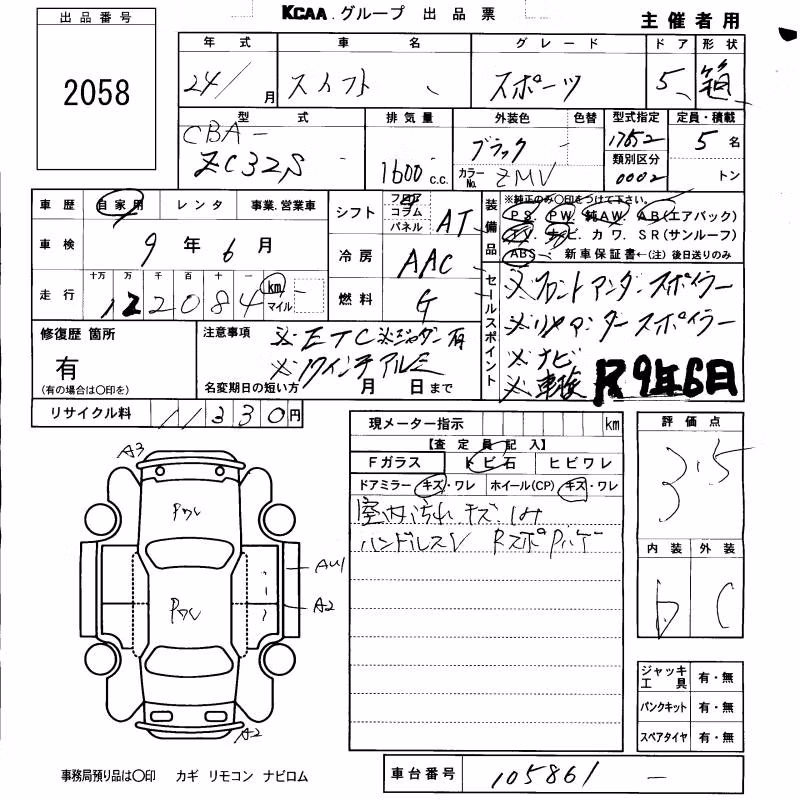 KCAA.グループ 出品票
主催者用
出品番号
2058
年式 車名 グレード ドア 形状
24/ 月 スイフト スポーツ 5 箱
型式 排気量 外装色 色替 型式指定 定員・積載
CBA-
ZC32S
1600 c.c.
ブラック
カラーNo. ZMV
17652
類別区分
0002
5 名
トン
車歴 自家用 レンタ 事業.営業車
車検 9年6月
走行 十万 万 千 百 十 一
122084 km マイル
シフト フロア コラム パネル AT
冷房 AAC
燃料 G
装備品
※純正のみ〇印をつけて下さい。
PS. PW. 純AW. AB(エアバック)
TV. ナビ. カワ. SR(サンルーフ)
ABS 新車保証書←(注)後日送りのみ
セールスポイント
※フロントアンダースポイラー
※リヤアンダースポイラー
※ナビ
※車検 R9年6日
修復歴 箇所
有
(有の場合は〇印を)
注意事項
※ETC
※17インチアルミ
名変期日の短い方 月 日まで
リサイクル料 11330円
現メーター指示 km
【査定員記入】
Fガラス トビ石 ヒビワレ
ドアミラー キズ・ワレ ホイール(CP) キズ・ワレ
室内汚れ キズ.シミ
ハンドルスレ
評価点
3.5
内装 外装
b C
A3
Pクレ
Pクレ
AU1
A2
A2
ジャッキ工具 有・無
パンクキット 有・無
スペアタイヤ 有・無
事務局預り品は〇印 カギ リモコン ナビロム
車台番号 105861